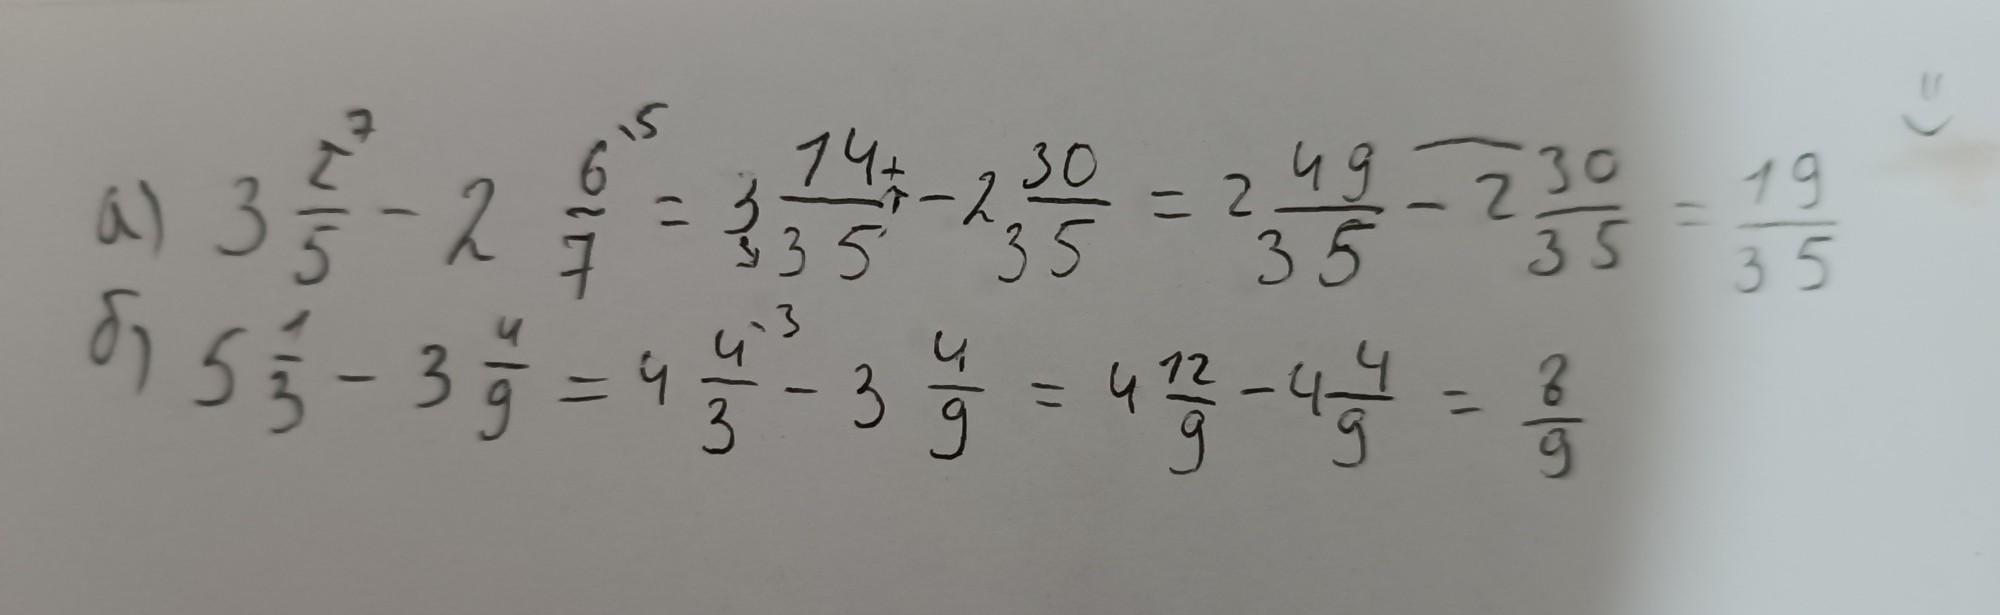 а) 3 2/5 ⁷ - 2 6/7 ·⁵ = 3 14/35 - 2 30/35 = 2 49/35 - 2 30/35 = 19/35
б) 5 1/3 - 3 4/9 = 4 4/3 ·³ - 3 4/9 = 4 12/9 - 4 4/9 = 8/9